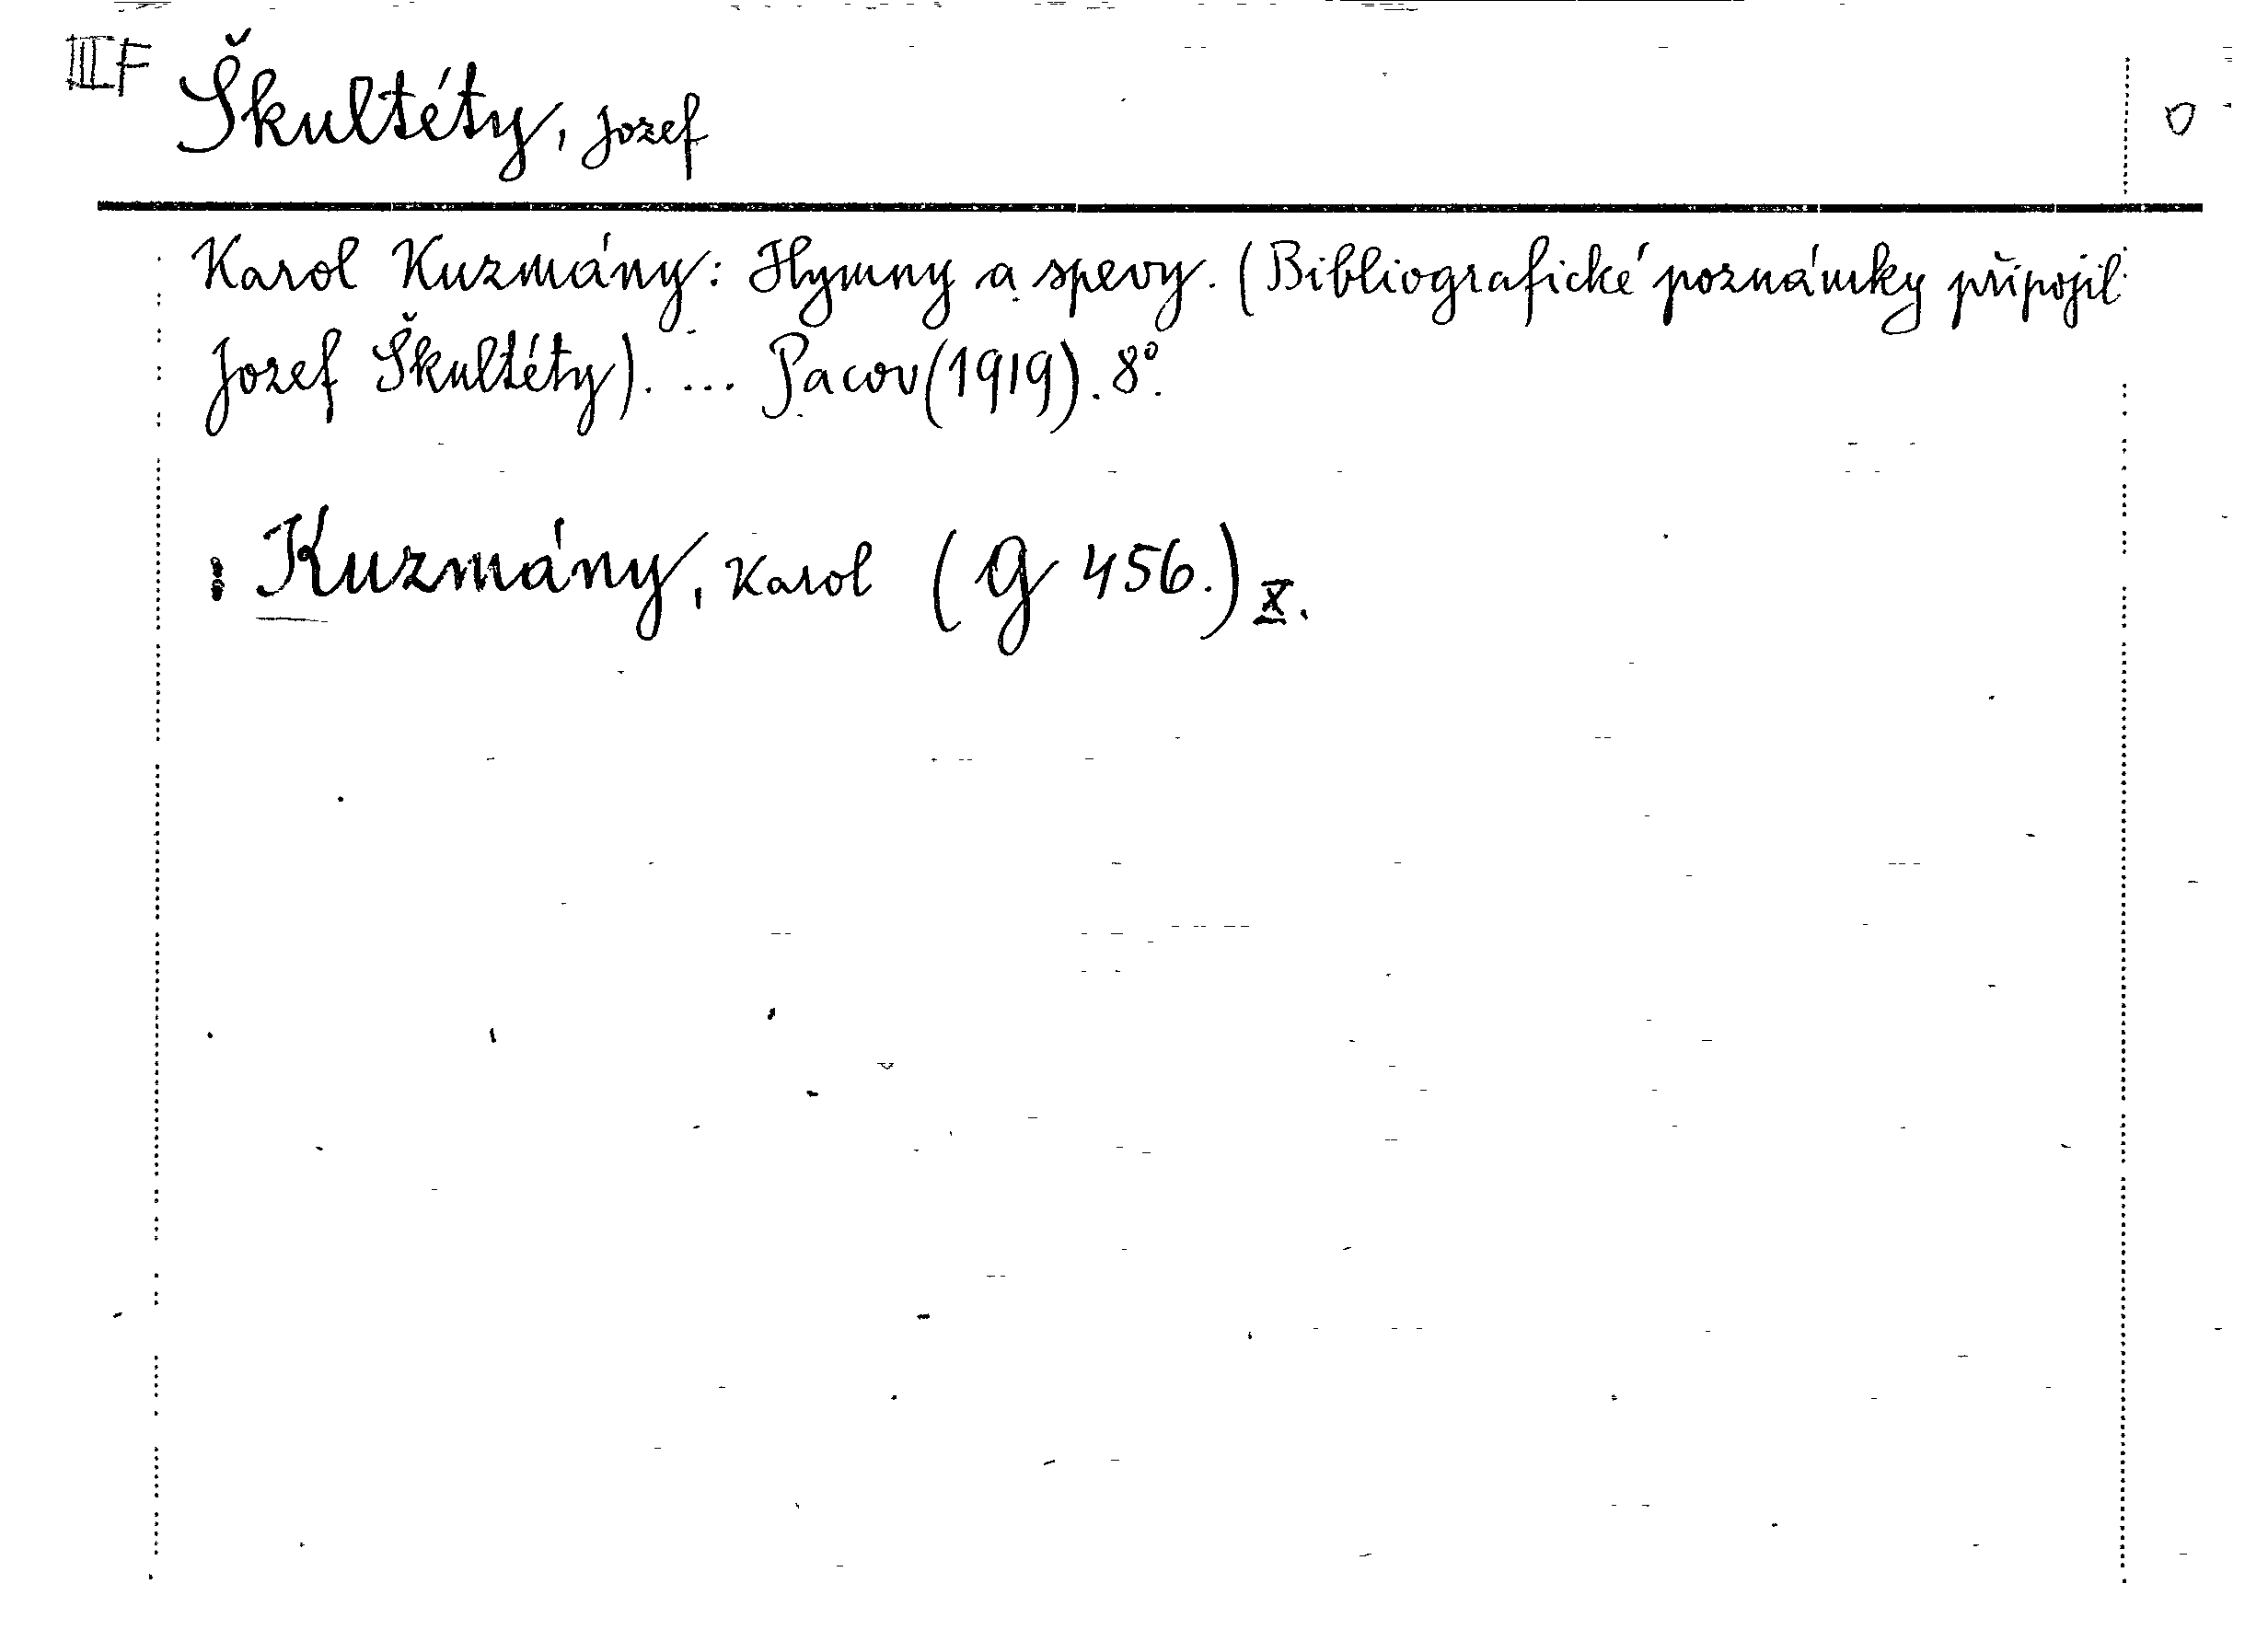 III F Škultéty, Jozef O
Karol Kuzmány: Hymny a spevy. (Bibliografické poznámky připojil
Jozef Škultéty). ... Pacov (1919). 8°.
: Kuzmány, Karol (G 456.) X.